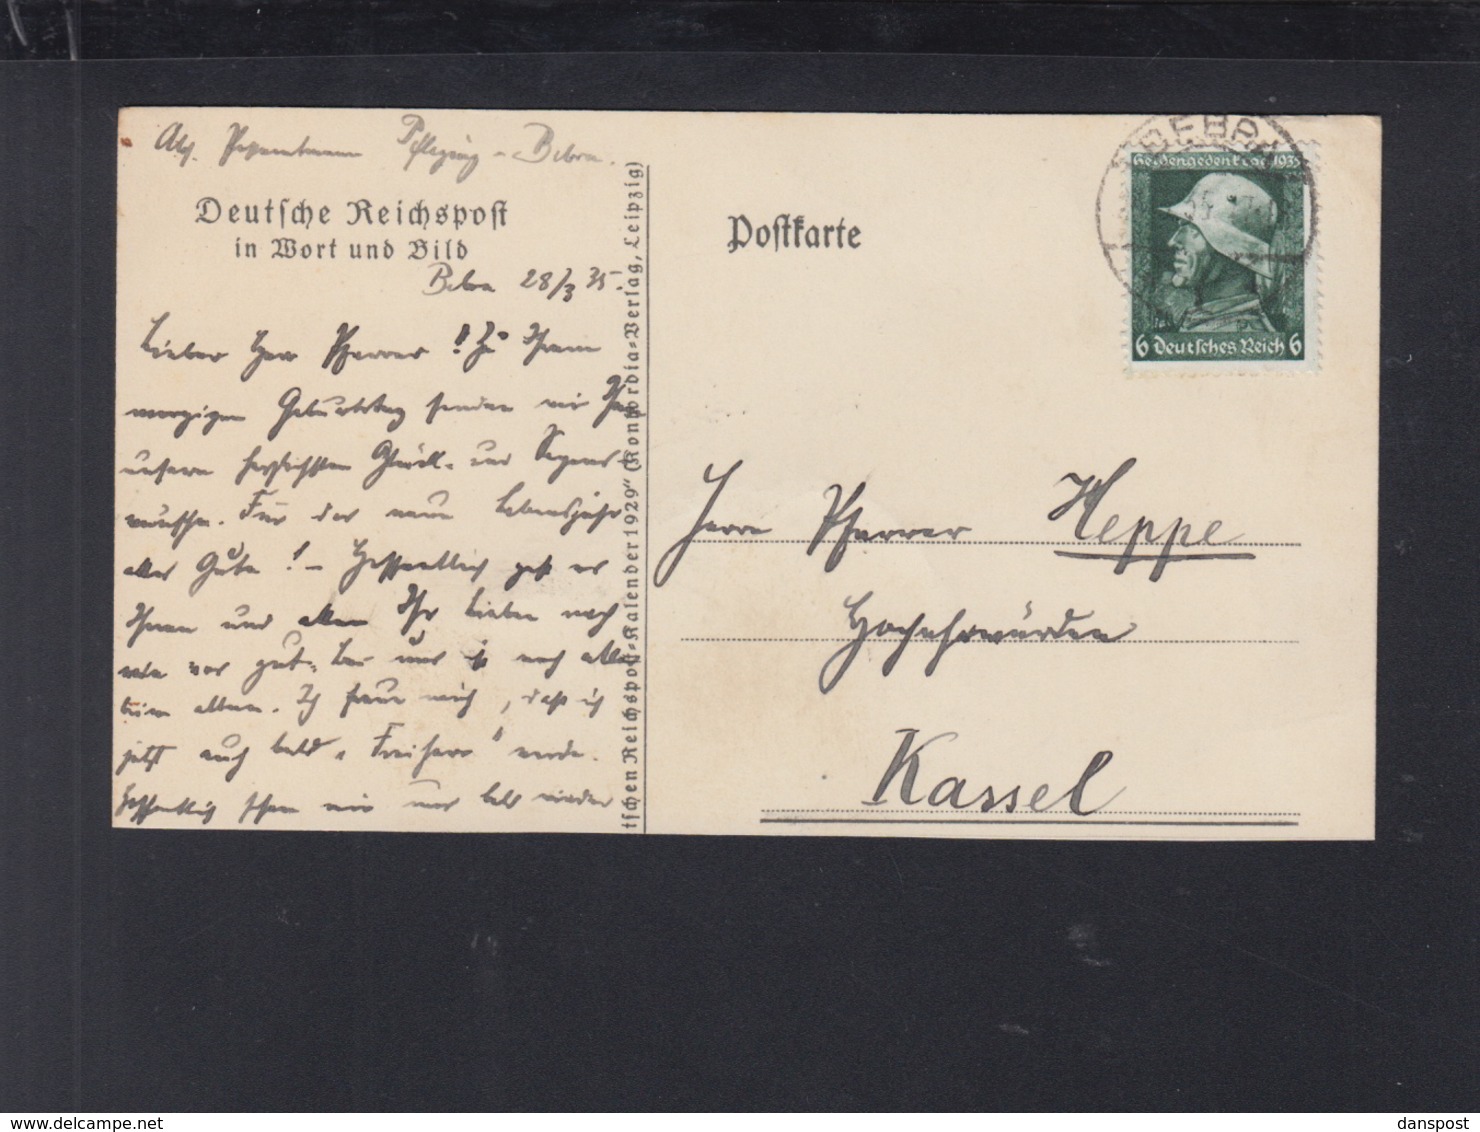 Bebra.
Deutsche Reichspost
in Wort und Bild
Bebra 28/3 35.
Lieber Herr Pfarrer! Zu Ihrem
morgigen Geburtstag senden wir Ihnen
unsere herzlichsten Glück- und Segens-
wünsche. Für das neue Lebensjahr
alles Gute! – Hoffentlich geht es
Ihnen und allen Ihr Lieben noch
wie vor gut. Bei uns ist noch alles
beim alten. Ich freue mich, daß ich
jetzt auch bald „Freiherr“ werde.
Hoffentlich sehen wir uns bald wieder
tschen Reichspost-Kalender 1929“ (Konkordia-Verlag, Leipzig)
Postkarte
BEBRA
Heldengedenktag 1935
6 Deutsches Reich 6
Herrn Pfarrer Heppe
Hochehrwürden
Kassel
delcampe.net
danspost